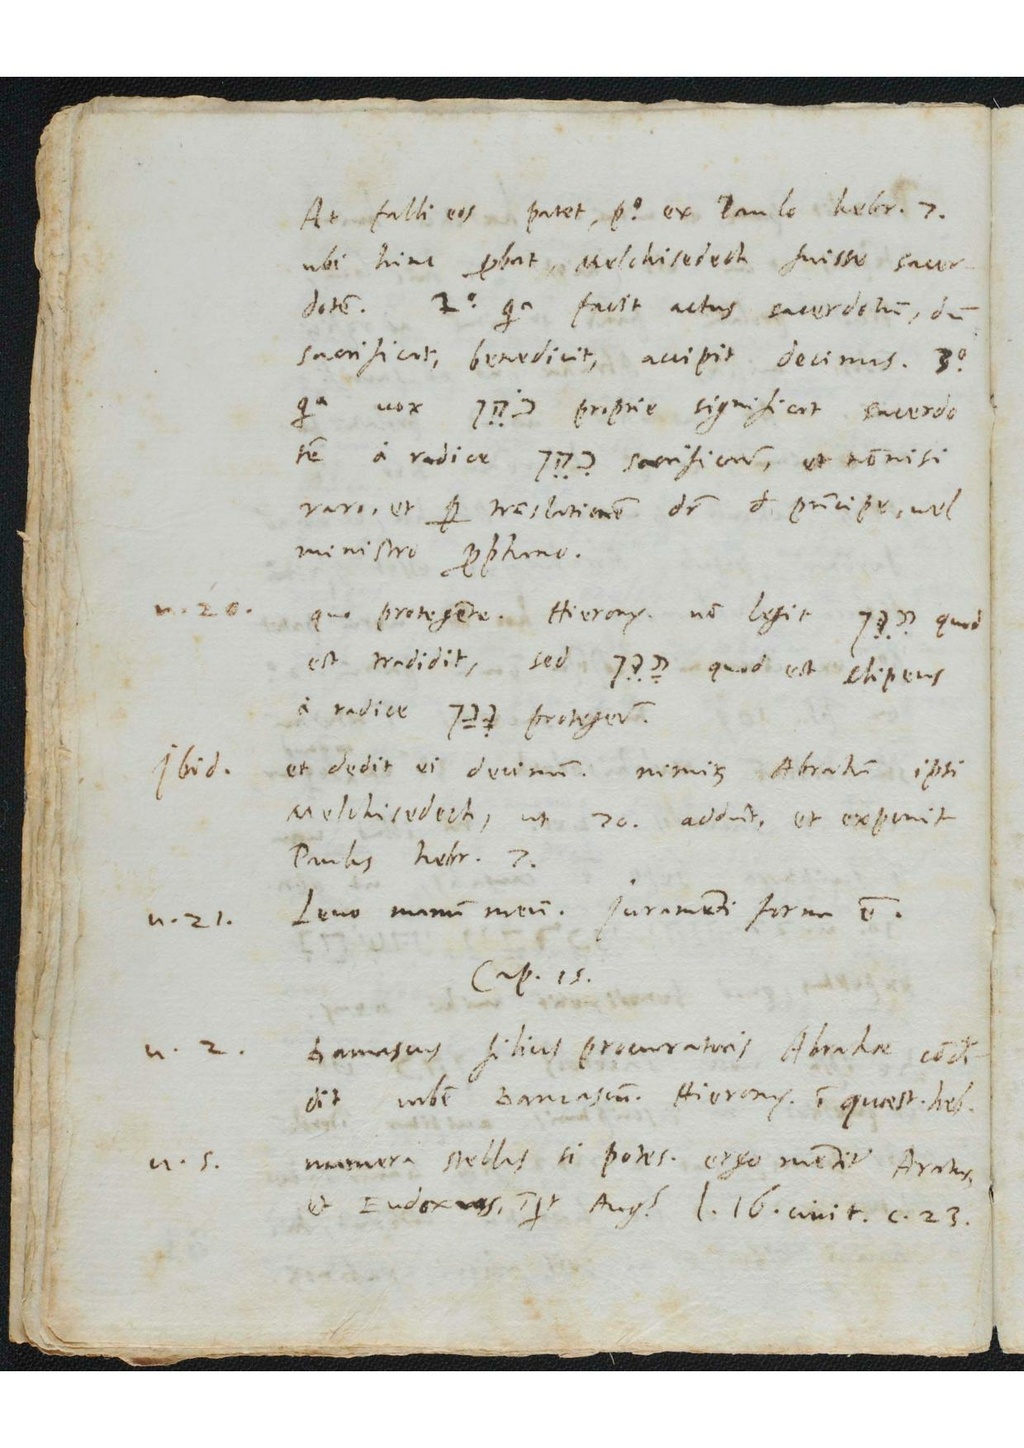 At falli eos patet, p.º ex Paulo hebr. 7.
ubi hinc ꝓbat, Melchisedech fuisse sacer-
dotē. 2.º qª facit actus sacerdotū, dū
sacrificat, benedicit, accipit decimas. 3.º
qª uox כֹּהֵן proprie significat sacerdo
tē à radice כִּהֵן sacrificavit, et nōnisi
raro, et ꝑ trāslationē dr̄ d̄ prīncipe, uel
ministro ꝓphano.
u. 20. quo protegēte. Hierony. nō legit מִגֵּן quod
est tradidit, sed מָגֵן quod est clipeus
à radice גָּנַן protegere.
Ibid. et dedit ei decimā. nimirū Abrahā ipsi
Melchisedech, ut 70. addūt, et exponit
Paulus hebr. 7.
u. 21. Leuo manū meā. Juramēti forma ē.
Cap. 15.
u. 2. Damascus filius procuratoris Abrahae cōdi-
dit urbē Damascū. Hierony. ī quaest. heb.
u. 5. numera stellas si potes. ergo mētitr Aratus,
et Eudoxus, Augs. l. 16. ciuit. c. 23.